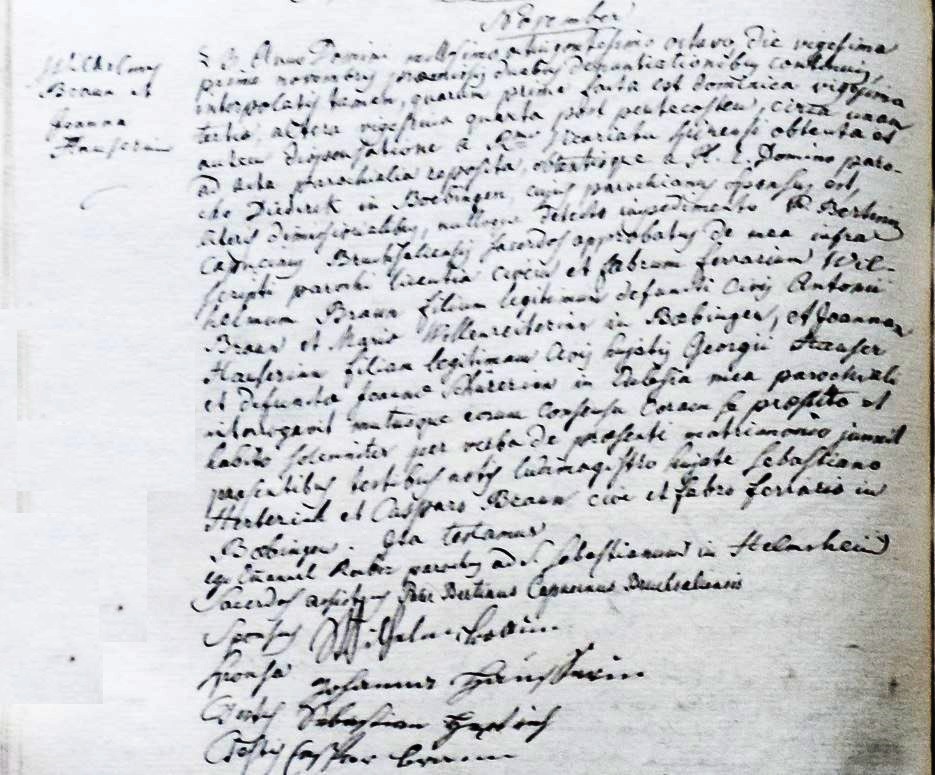 November
Wilhelmus
Braun et
Joanna
Hauserin
Anno Domini millesimo octingentesimo octavo die vigesima
prima novembris praemissis duabus denuntiationibus continuis,
interpolatis tamen, quarum prima facta est dominica vigesima
tertia, altera vigesima quarta post pentecosten, circa unam
autem dispensatione a Rmo Vicariatu obtenta et
ad acta parochialia reposita, obtentisque a Domino paro-
cho Diderik in Boebingen, cujus parochianus sponsus est,
literis dimissorialibus, nulloque detecto impedimento P. Bertinus
Capucinus Bruchsaliensis sacerdos approbatus de mea infra
scripti parochi licentia civem et fabrum ferrarium Wil-
helmum Braun filium legitimum defuncti civis Antonii
Braun et Mariae Wollenreiterin in Boebingen, et Joannam
Hauserin filiam legitimam civis hujatis Georgii Hauser
et defunctae Joannae in Ecclesia mea parochiali
interrogavit mutuoque eorum consensu coram se praestito et
habito solemniter per verba de praesenti matrimonio junxit
praesentibus testibus notis ludimagistro hujate Sebastiano
et Casparo Braun cive et fabro ferrario in
Boebingen. Ita testamur
ego parochus ad S. Sebastianum in Helmsheim
Sacerdos assistens Pater Bertinus Capucinus Bruchsaliensis
Sponsus Wilhelm Braun
Sponsa Johanna Häusserin
Testis Sebastian
Testis Casper Braun